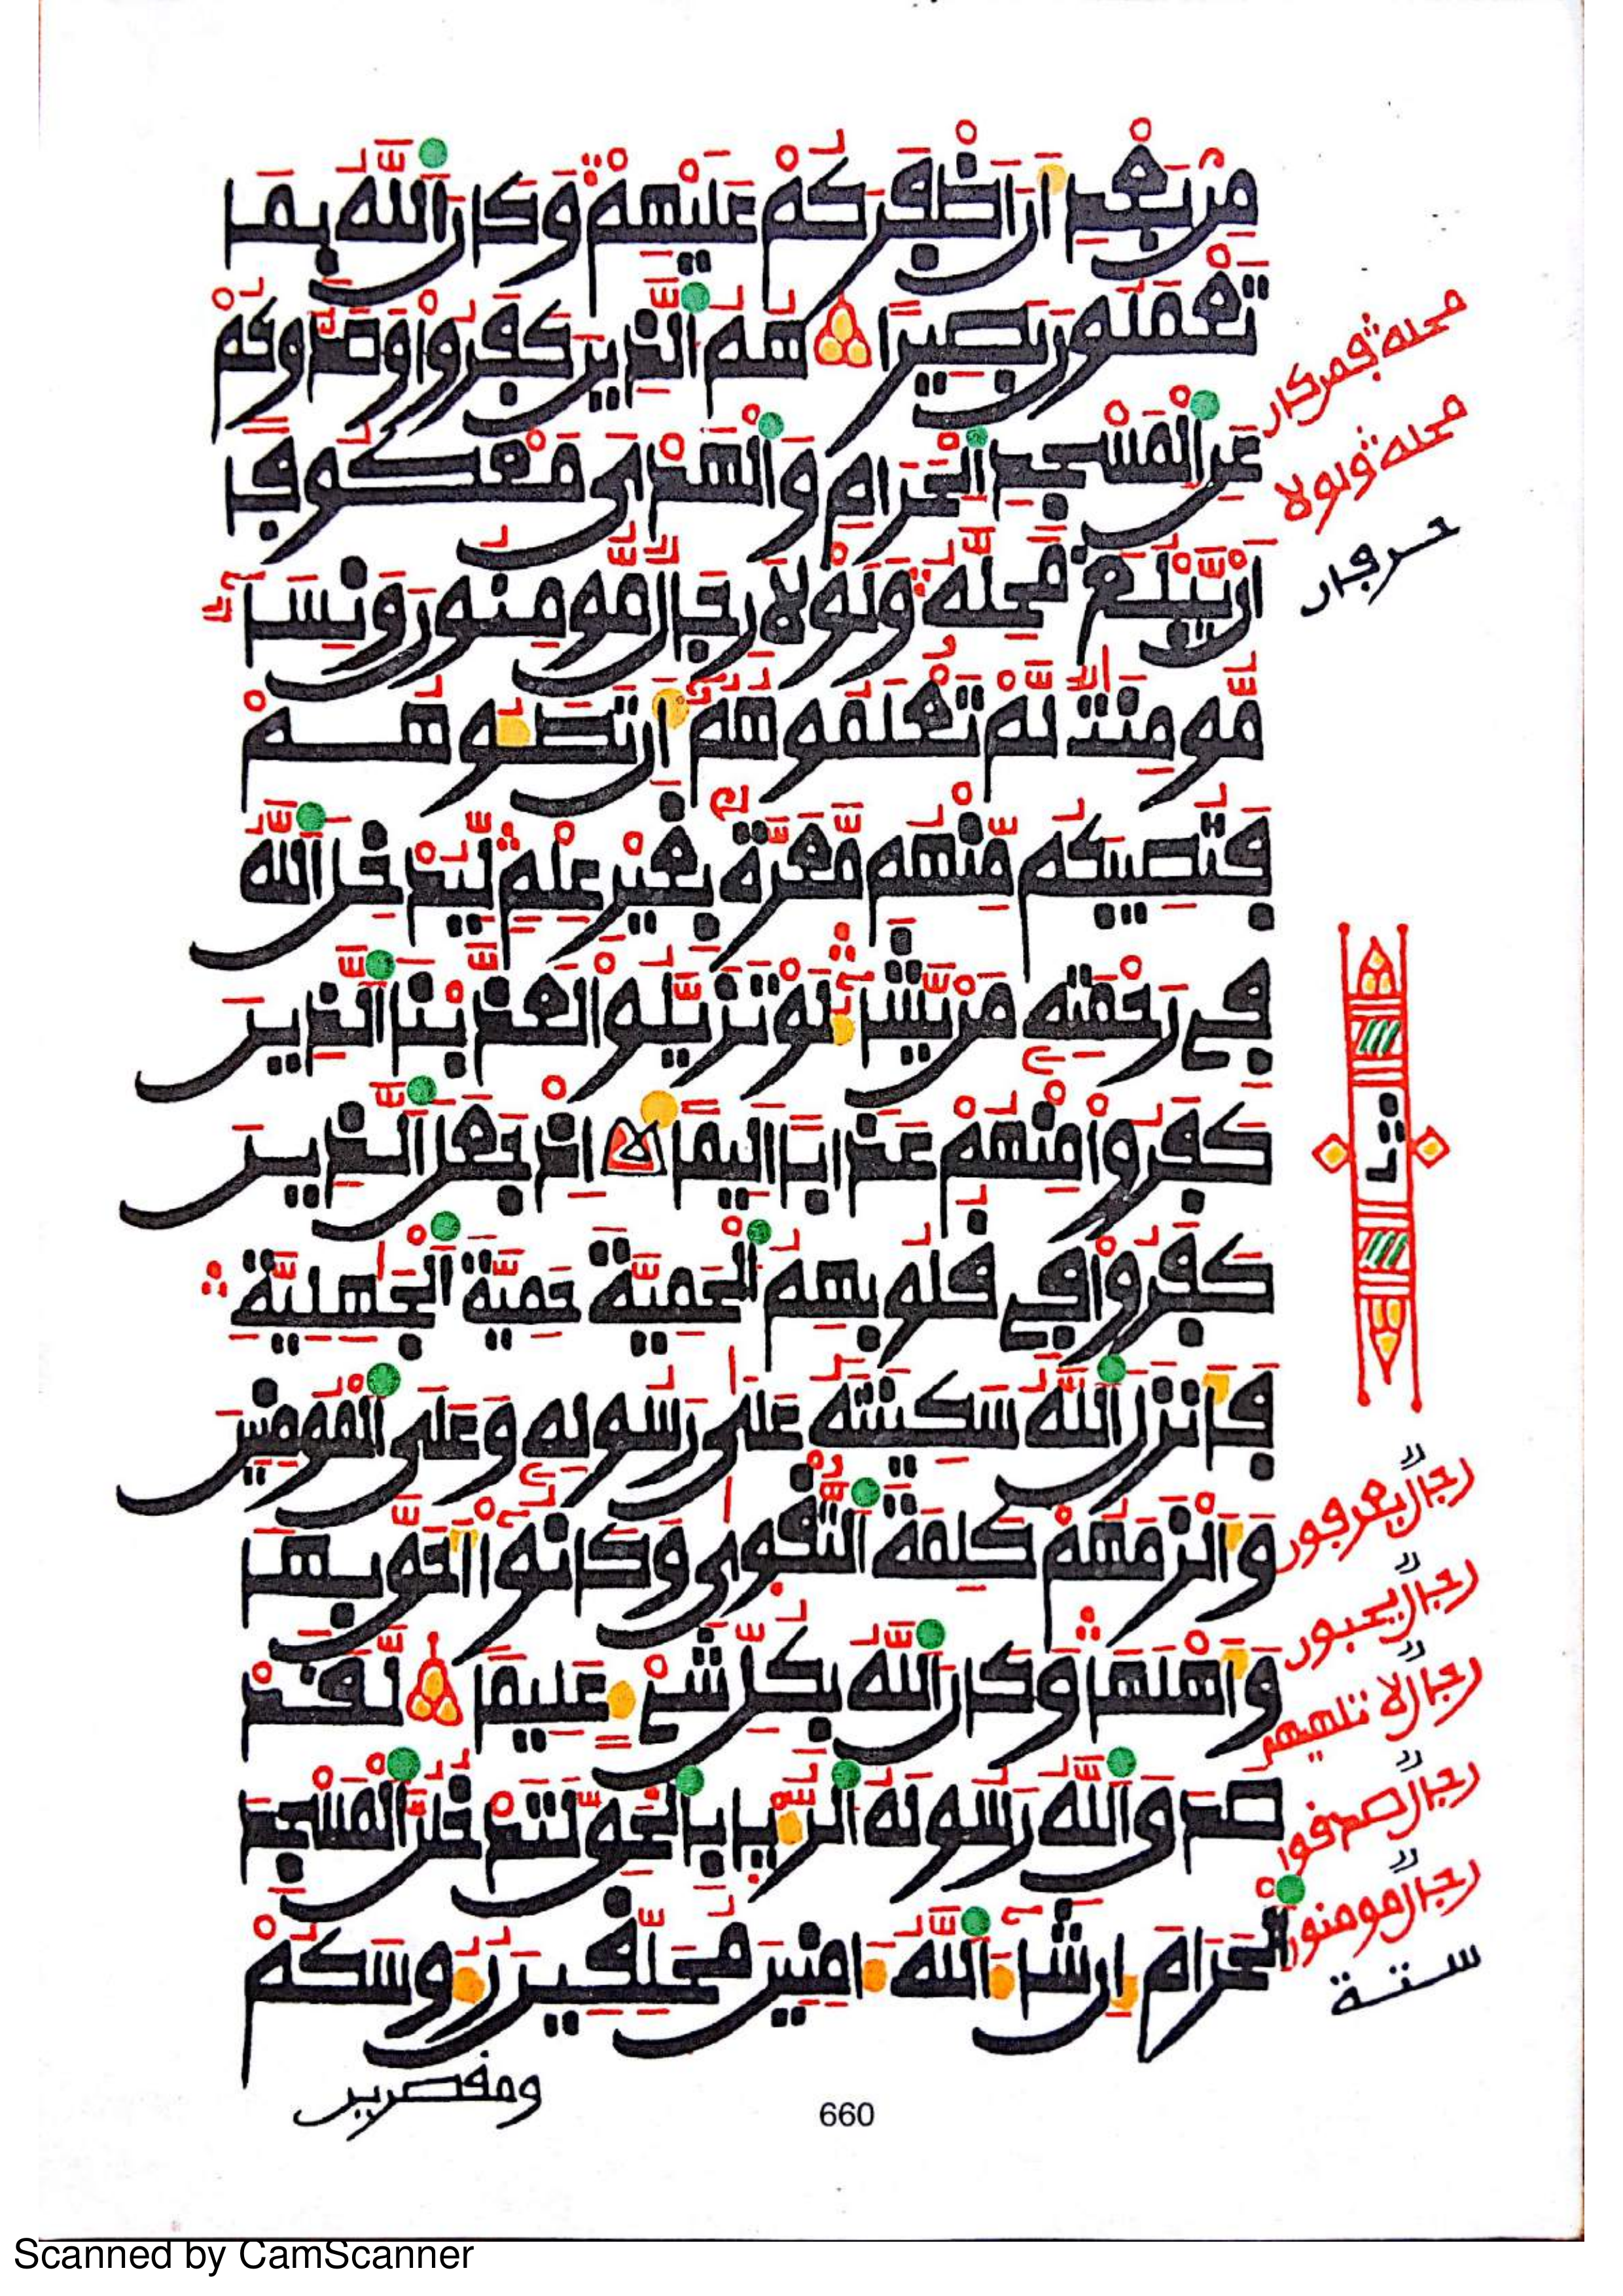 من بعد ان اظفركم عليهم وكان الله بما
تعملون بصيرا هم الذين كفروا وصدوكم
عن المسجد الحرام والهدى معكوفا
ان يبلغ محله ولولا رجال مومنون ونسا
مومنت لم تعلموهم ان تطوهم
فتصيبكم منهم معرة بغير علم ليدخل الله
في رحمته من يشا لو تزيلوا لعذبنا الذين
كفروا منهم عذابا اليما اذ جعل الذين
كفروا في قلوبهم الحمية حمية الجهلية
فانزل الله سكينته على رسوله وعلى المومنين
والزمهم كلمة التقوى وكانوا احق بها
واهلها وكان الله بكل شي عليما لقد
صدق الله رسوله الريا بالحق لتدخلن المسجد
الحرام ان شا الله امنين محلقين روسكم
ومقصرين
محله فمن كان
محله ولولا
حرفان
رجال يعرفون
رجال يحبون
رجال لا تلهيهم
رجال صدقوا
رجال مومنون
ستة
660
Scanned by CamScanner